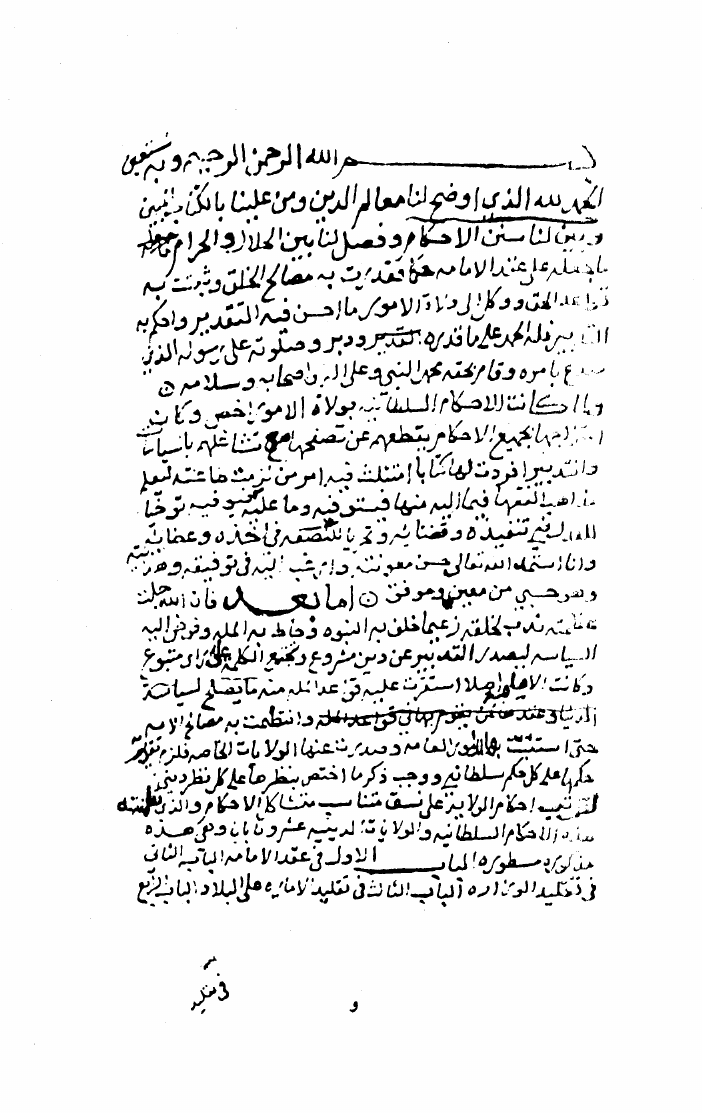 بسم الله الرحمن الرحيم وبه نستعين
الحمد لله الذي اوضح لنا معالم الدين ومن علينا بالكتاب المبين
وبين لنا سنن الاحكام وفصل لنا بين الحلال والحرام
ما جعله على حكما تقدرت به مصالح الخلق وثبتت به
قواعد الحق ووكل الى ولاة الامور ما احسن فيه التقدير واحكم به
التدبير فله الحمد على ما قدره ودبر وصلوته على رسوله الذي
صدع بامره وقام بحقه محمد النبي وعلى اله واصحابه وسلامه
ولما كانت الاحكام السلطانيه بولاة الامور احص وكان
امتزاجها بجميع الاحكام يقطعهم عن تصفحها مع تشاغلهم بالسياسة
والتدبير افردت لها كتابا امتثلت فيه امر من لزمت طاعته ليعلم
مذاهب الفقها فيما اليه منها فيستوفيه وما عليه فيوفيه توخيا
للعدل في تنفيذه وقضائه وتحريا للنصفه في اخذه وعطائه
وانا اسئل الله تعالى حسن معونته وارغب اليه في توفيقه وهدايته
وهو حسبي من معين وموفق اما بعد فان الله جلت
قدرته ندب للخلقه زعيما خلف به النبوه وحاط به المله وفوض اليه
السياسه ليصدر التدبير عن دين مشروع وتجتمع الكلمه على راي متبوع
وكانت الامامه اصلا استقرت عليه قواعد المله
وانتظمت به مصالح الامه
حتى استثبتت بها الامور العامه وصدرت عنها الولايات الخاصه فلزم تقديم
حكمها على كل حكم سلطاني ووجب ذكر ما اختص بنظرها على كل نظر ديني
لترتيب احكام الولايات على نسق متناسب متشاكل الاحكام والذي تضمنته
هذه الاحكام السلطانيه والولايات الدينيه عشرون بابا وهي هذه
مذكوره مسطوره الباب الاول في عقد الامامه الباب الثاني
في تقليد الوزاره الباب الثالث في تقليد الاماره على البلاد الباب الرابع
في تقليد